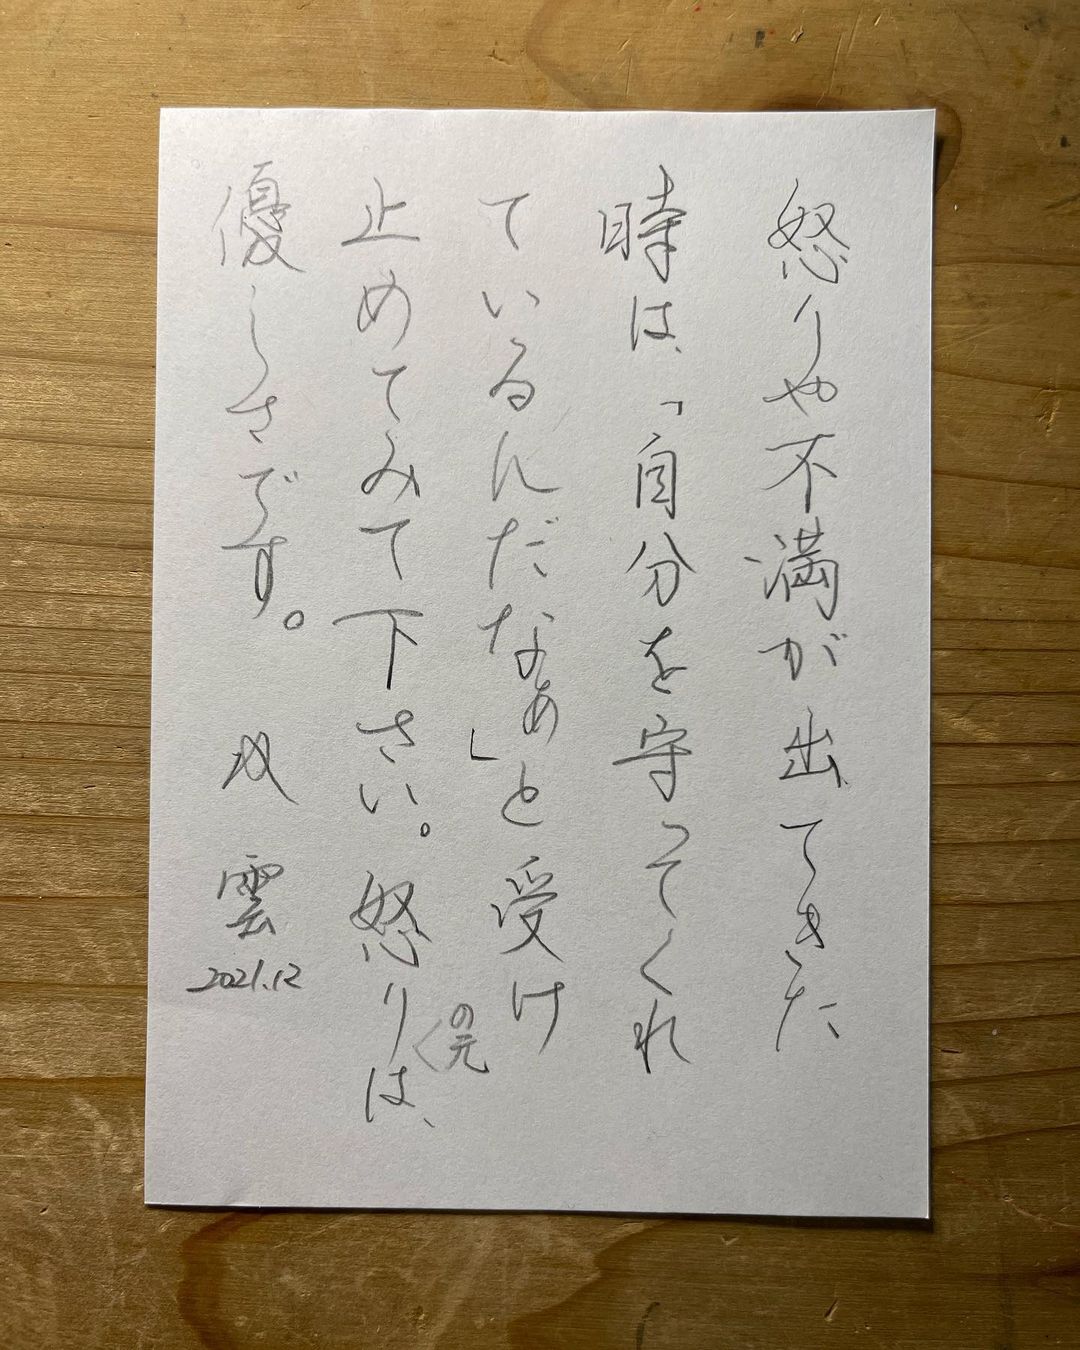 怒りや不満が出てきた
時は、「自分を守ってくれ
ているんだなぁ」と受け
止めてみて下さい。怒りの元は、
優しさです。
雲
2021.12